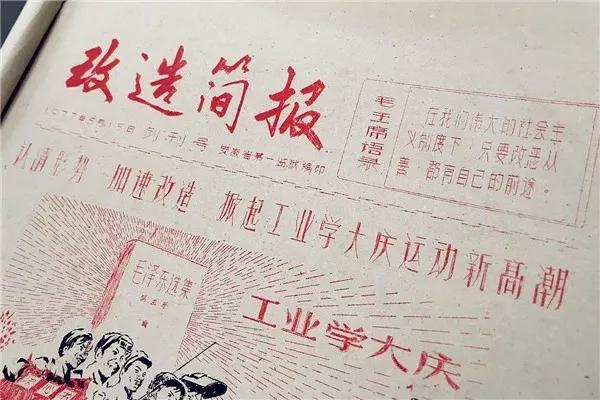 改造简报
1977年5月15日 创刊号 安徽省第一监狱编印
毛主席语录
在我们伟大的社会主
义制度下，只要改恶从
善，都有自己的前途。
认清形势 加速改造 掀起工业学大庆运动新髙潮
毛泽东选集
第五卷
工业学大庆